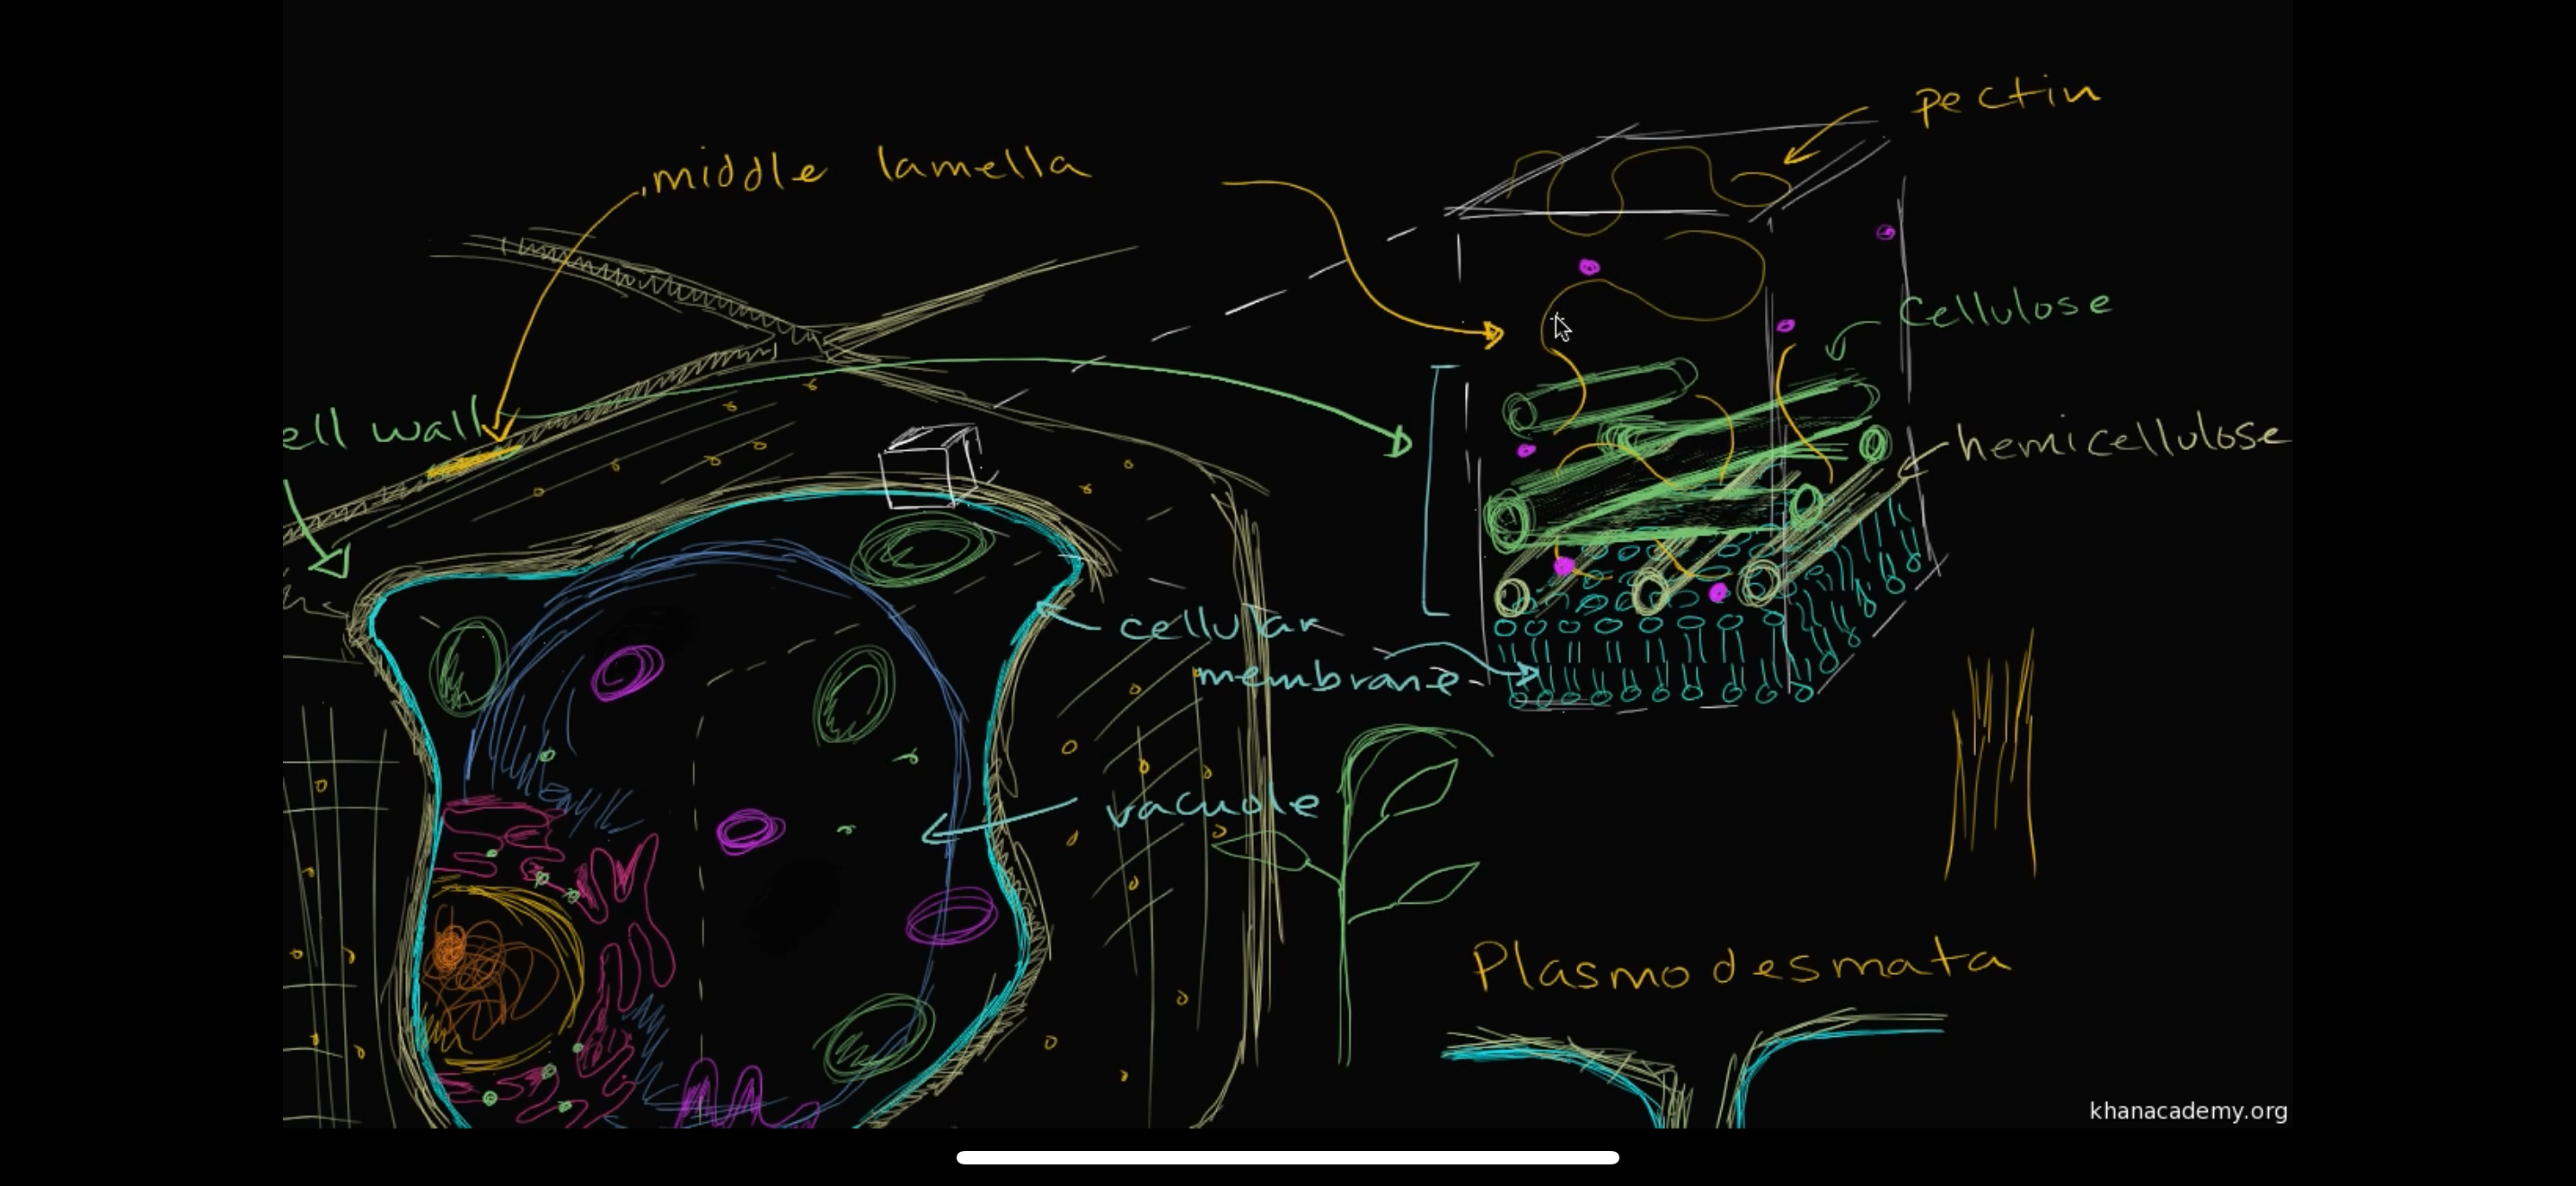 pectin
middle lamella
cellulose
ell wall
hemicellulose
cellular
membrane
vacuole
Plasmodesmata
khanacademy.org